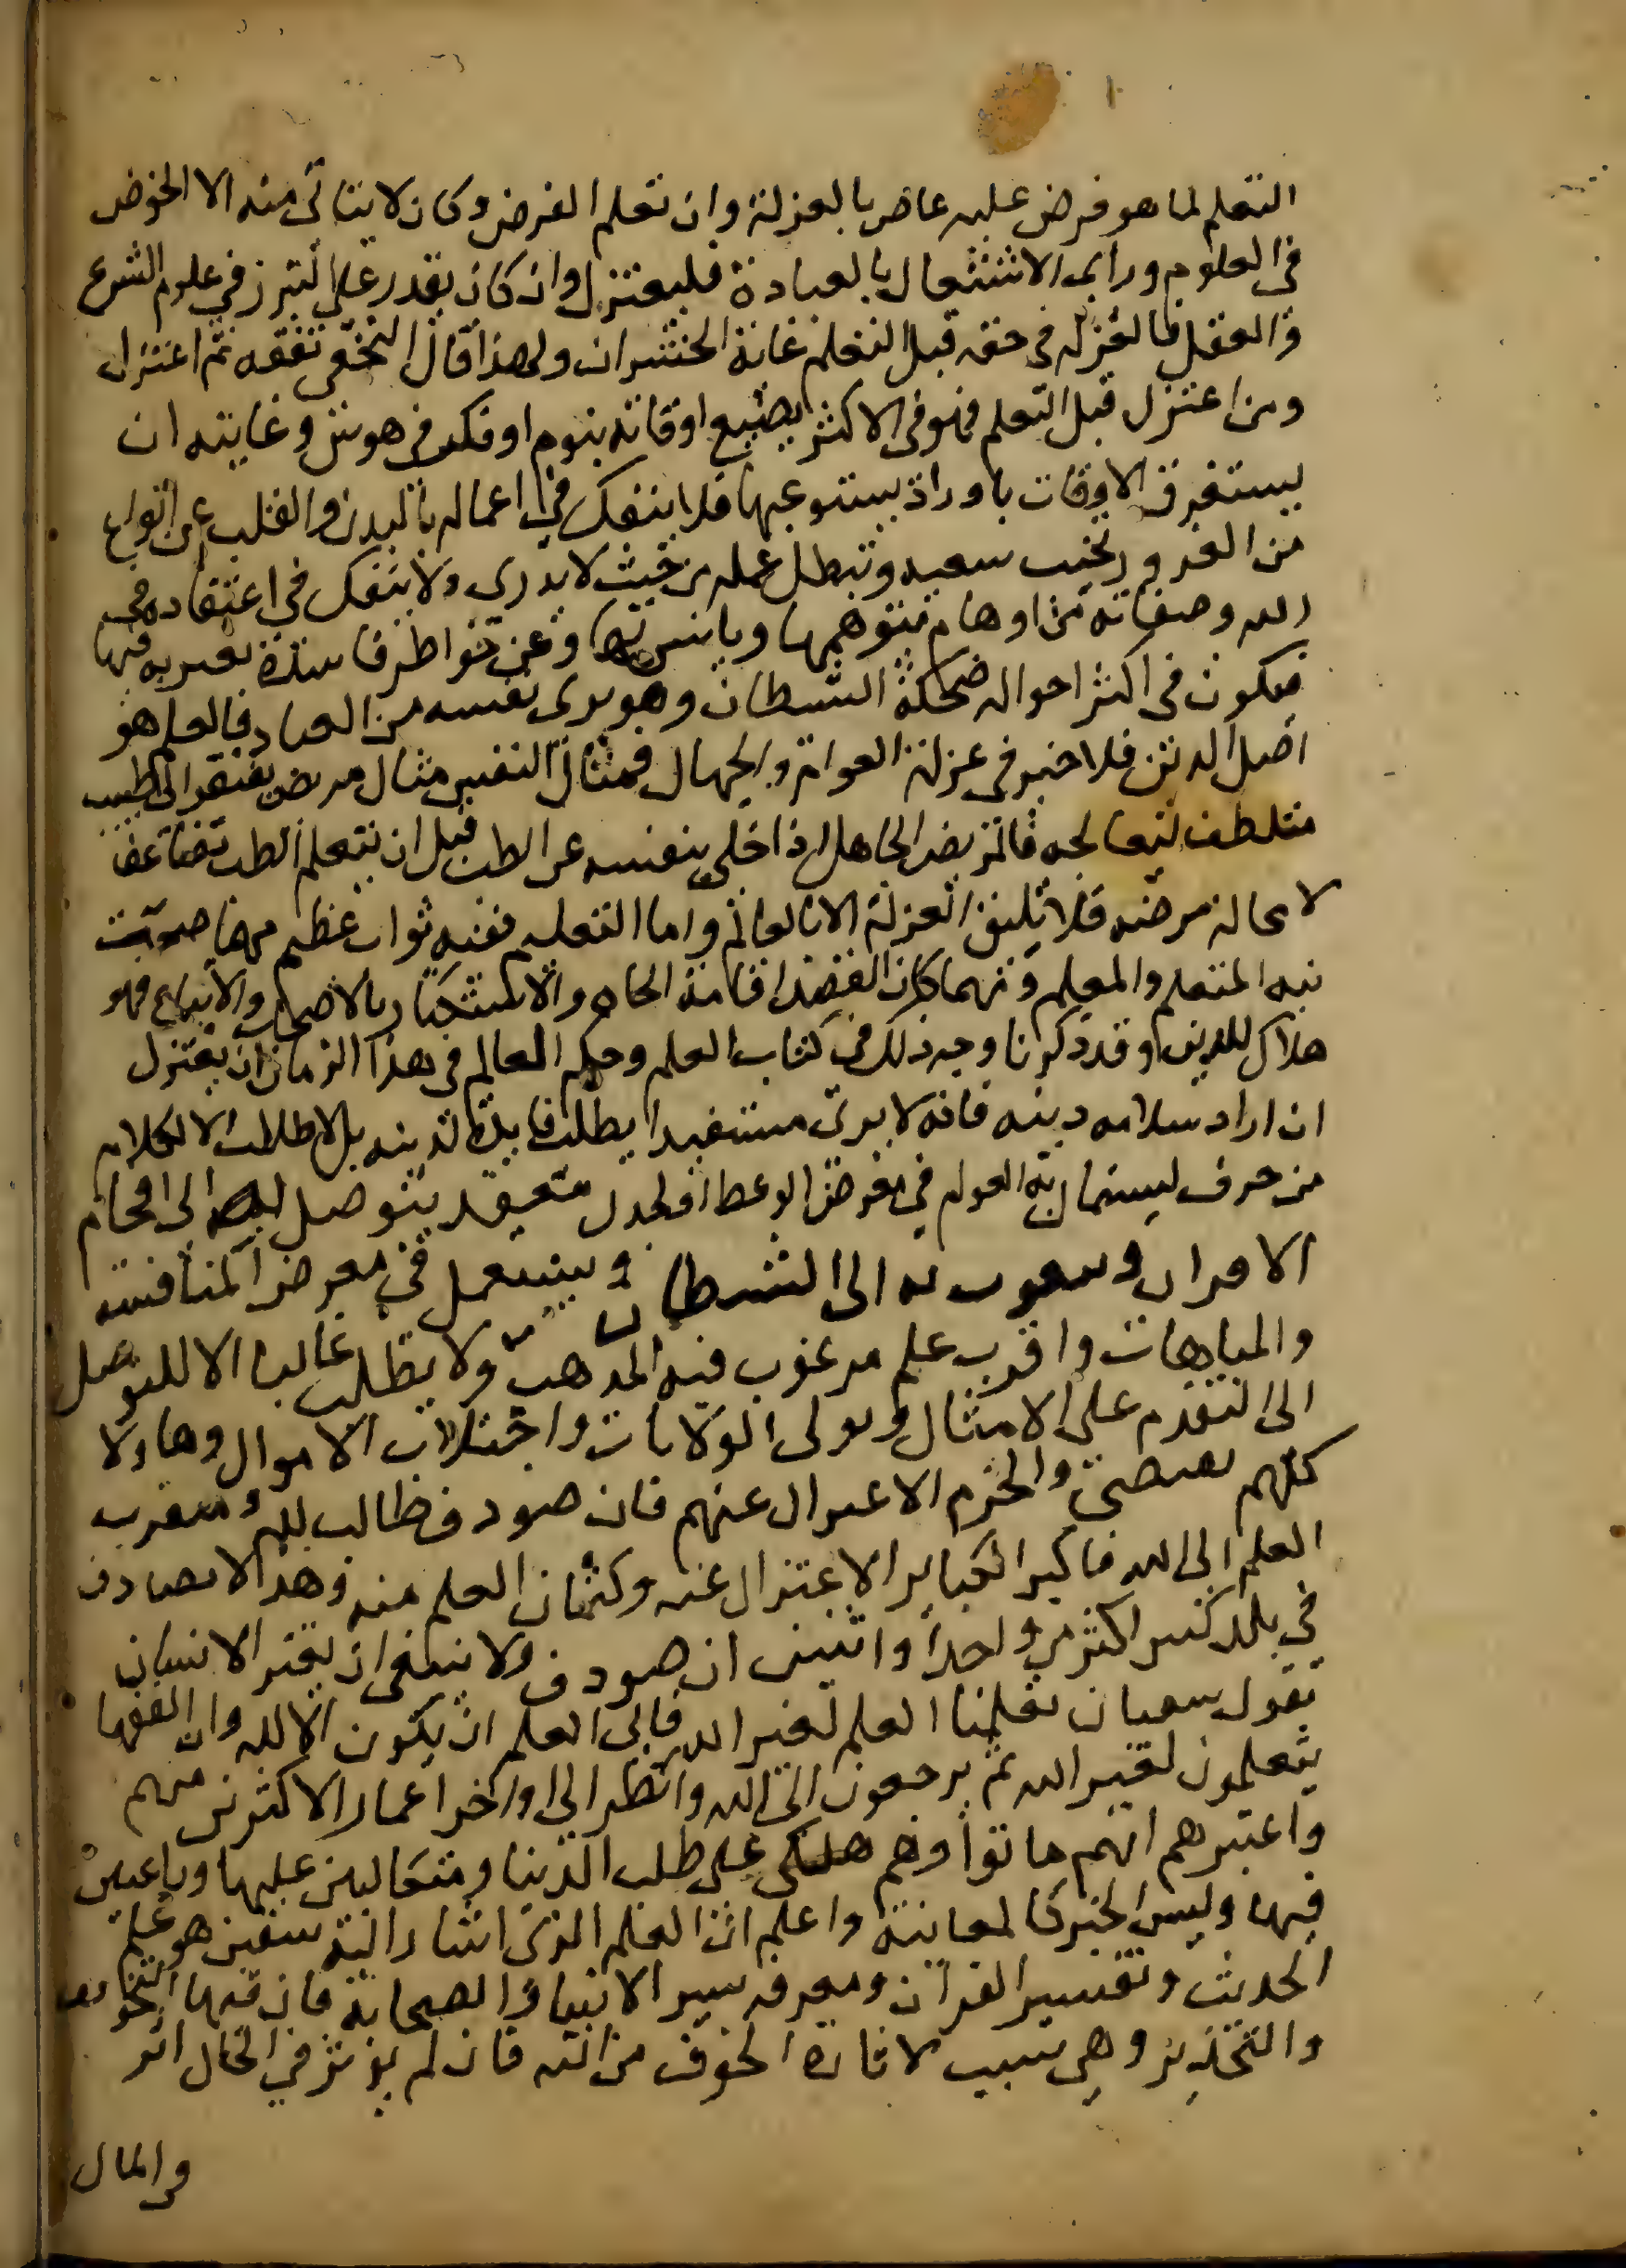 التعلم لما هو فرض عليه عاص بالعزلة وان تعلم الفرض وكان لا يتاتى منه الا الخوض
في العلوم وراى الاشتغال بالعبادة فليعتزل وان كان يقدر على التبرز في علوم الشرع
والعقل فالعزلة في حقه قبل التعلم غاية الخسران ولهذا قال النخعي تفقه ثم اعتزل
ومن اعتزل قبل التعلم فهو في الاكثر يضيع اوقاته بنوم او فكر في هوس وغايته ان
يستغرق الاوقات باوراد يستوعبها فلا ينفك في اعماله بالبدن والقلب عن انواع
من الغرور يخيب سعيه وتبطل عمله من حيث لا يدري ولا ينفك في اعتقاده في
الله وصفاته من اوهام يتوهمها ويانس بها وعن خواطر فاسدة تعتريه فيها
فيكون في اكثر احواله ضحكة الشيطان وهو يرى نفسه من العباد فالعلم هو
اصل الدين فلا خير في عزلة العوام والجهال فمثال النفس مثال مريض يفتقر الى طبيب
متلطف ليعالجه فالمريض الجاهل اذا خلى بنفسه عن الطب قبل ان يتعلم الطب تضاعف
لا محالة مرضه فلا تليق العزلة الا بالعالم واما التعليم ففيه ثواب عظيم مهما صحت
نية المتعلم والمعلم ومهما كان القصد اقامة الجاه والاستكثار بالاصحاب والاتباع فهو
هلاك للدين وقد ذكرنا وجه ذلك في كتاب العلم وحكم العالم في هذا الزمان ان يعتزل
ان اراد سلامه دينه فانه لا يرى مستفيدا يطلب فايدة لدينه بل لا طالب الا لكلام
من حرف ليستمال به العوام في معرض الوعظ او لجدل متعقد يتوصل به الى افحام
الاقران وتتقرب به الى السلطان ويستعمل في معرض المنافسة
والمباهات واقرب علم مرغوب فيه المذهب ولا يطلب غالبا الا للتوصل
الى التقدم على الامثال وتولى الولايات واجتلاب الاموال وهاولا
كلهم والحزم الاعتزال عنهم فان صودف طالب لله ومتقرب
العلم الى الله فاكبر الكباير الاعتزال عنه وكتمان العلم منه وهذا لا يصادف
في بلد كبير اكثر من واحدا واثنين ان صودف ولا ينبغي ان يغتر الانسان
بقول سفيان تعلمنا العلم لغير الله فابى العلم ان يكون الا لله وان الفقها
يتعلمون لغير الله ثم يرجعون الى الله وانظر الى اواخر اعمار الاكثر من منهم
واعتبرهم انهم ماتوا وهم هلكى على طلب الدنيا ومتكالبين عليها وراغبين
فيها وليس الخبر كالمعاينة واعلم ان العلم الذي اشار اليه سفين هو علم
الحديث وتفسير القرآن ومعرفه سير الانبيا والصحابة فان فيها التخويف
والتحذير وهي سبب لاثارة الخوف من الله فان لم يوثر في الحال اثر
والمال